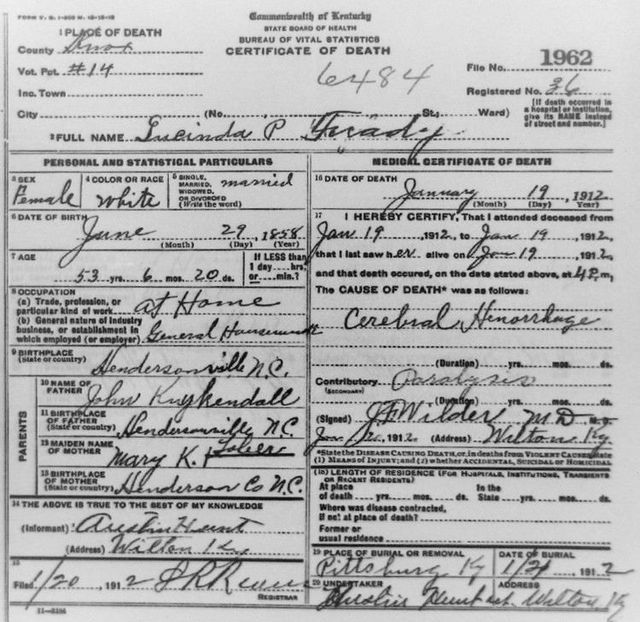 FORM V. S. 1-
Commonwealth of Kentucky
STATE BOARD OF HEALTH
BUREAU OF VITAL STATISTICS
CERTIFICATE OF DEATH
1 PLACE OF DEATH
County Knox
Vot. Pct. #14
Inc. Town
6484
File No. 1962
Registered No. 36
[If death occurred in a hospital or institution, give its NAME instead of street and number.]
City (No. St.; Ward)
2 FULL NAME Lucinda P
PERSONAL AND STATISTICAL PARTICULARS
3 SEX Female
4 COLOR OR RACE White
5 SINGLE, MARRIED, WIDOWED, OR DIVORCED (Write the word) married
6 DATE OF BIRTH
June 29, 1858
(Month) (Day) (Year)
7 AGE
53 yrs. 6 mos. 20 ds.
If LESS than 1 day....hrs. or....min.?
8 OCCUPATION
(a) Trade, profession, or particular kind of work at Home
(b) General nature of industry business, or establishment in which employed (or employer) General
9 BIRTHPLACE
(State or country) Hendersonville N.C.
PARENTS
10 NAME OF FATHER John Kuykendall
11 BIRTHPLACE OF FATHER (State or country) Hendersonville N.C.
12 MAIDEN NAME OF MOTHER Mary K.
13 BIRTHPLACE OF MOTHER (State or country) Henderson Co N.C.
14 THE ABOVE IS TRUE TO THE BEST OF MY KNOWLEDGE
(Informant) Austin Hunt
(Address) Wilton Ky
15
Filed 1/20, 1912
REGISTRAR
11-3184
MEDICAL CERTIFICATE OF DEATH
16 DATE OF DEATH
January 19, 1912
(Month) (Day) (Year)
17 I HEREBY CERTIFY, That I attended deceased from
Jan 19, 1912, to Jan 19, 1912,
that I last saw her alive on Jan 19, 1912,
and that death occured, on the date stated above, at 4 P.m.
The CAUSE OF DEATH* was as follows:
Cerebral Hemorrhage
(Duration) yrs. mos. ds.
Contributory Paralysis
(SECONDARY)
(Duration) yrs. mos. ds.
(Signed) J F Wilder M.D.
Jan, 1912 (Address) Wilton Ky
*State the DISEASE CAUSING DEATH, or, in deaths from VIOLENT CAUSES state
(1) MEANS OF INJURY; and (2) whether ACCIDENTAL, SUICIDAL or HOMICIDAL
18 LENGTH OF RESIDENCE (FOR HOSPITALS, INSTITUTIONS, TRANSIENTS OR RECENT RESIDENTS)
At place of death yrs. mos. ds. In the State yrs. mos. ds.
Where was disease contracted,
If not at place of death?
Former or usual residence
19 PLACE OF BURIAL OR REMOVAL
Pittsburg Ky
DATE OF BURIAL
1/21 1912
20 UNDERTAKER
ADDRESS
Wilton Ky